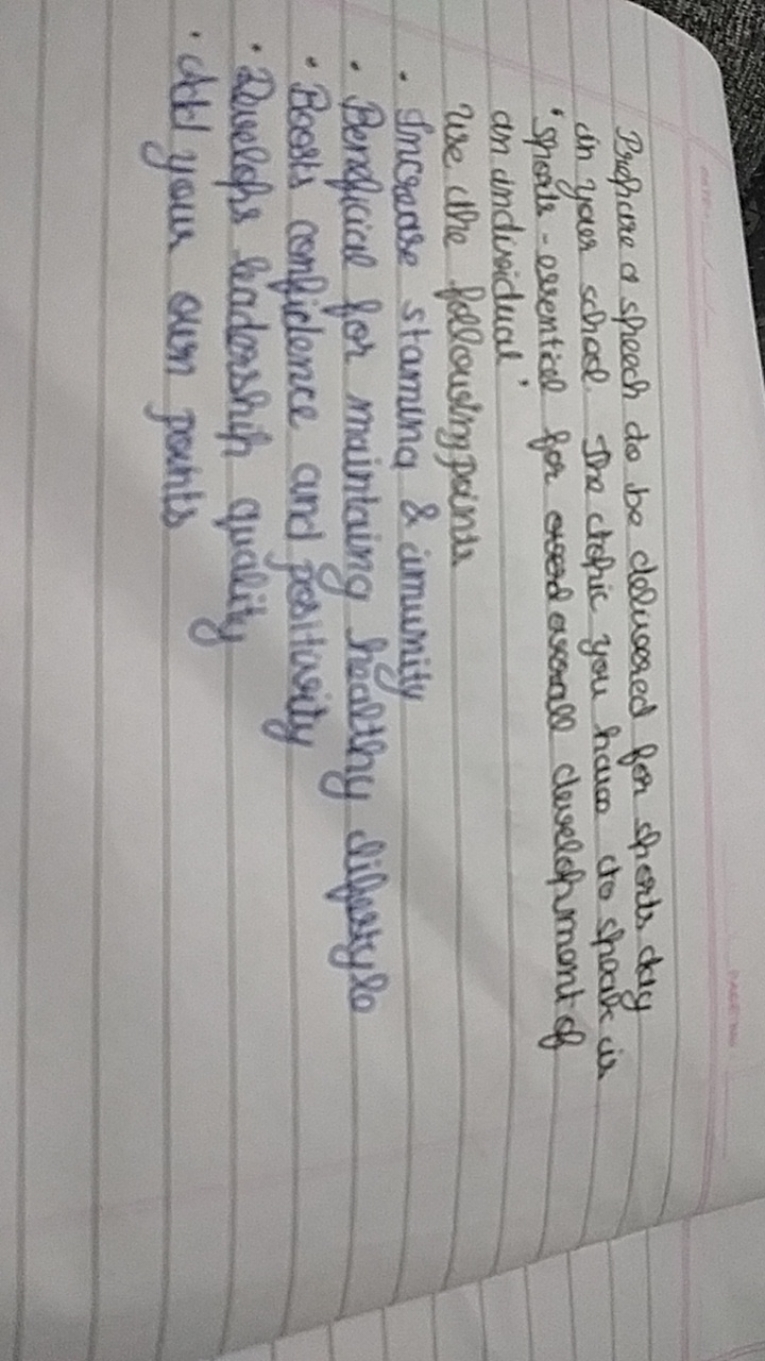 Prepare a speech to be delivered for sports day
in your school. The topic you have to speak is
'sports - essential for overall development of
an individual'
use the following points
• Increase stamina & imunity
• Beneficial for maintaing healthy lifestyle
• Boosts confidence and positivity
• Develops leadership quality
• Add your own points